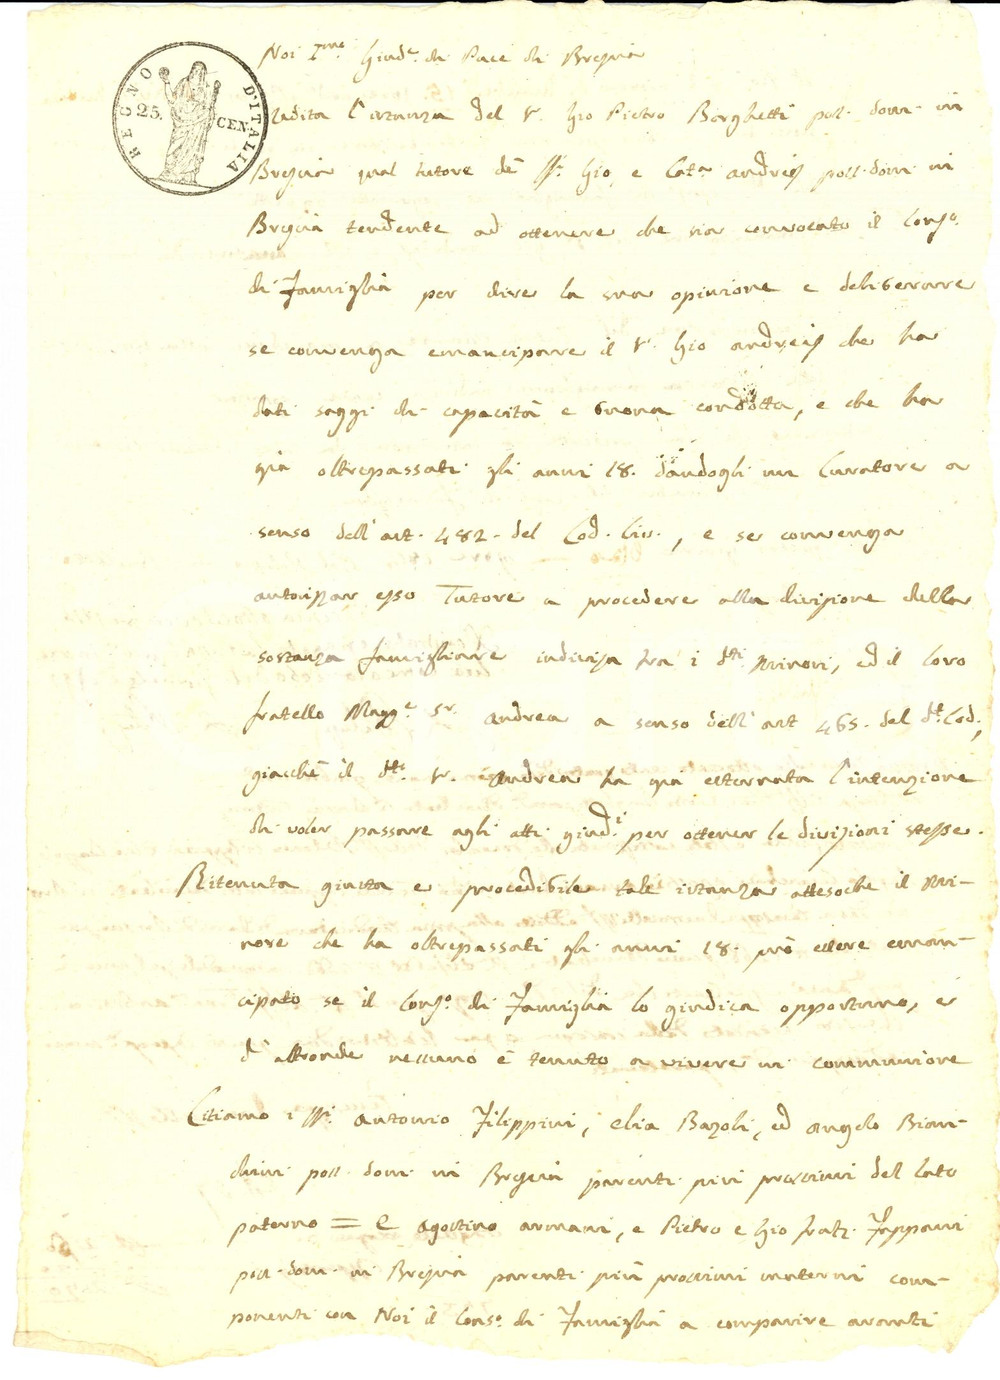 REGNO D'ITALIA
25. CEN.
Noi Giud.e di Pace di Brescia
Udita l'istanza del Sr. Gio Pietro Borghetti poss. dom. in
Brescia qual tutore de SSri. Gio, e Cat.a Andreis poss. dom. in
Brescia tendente ad ottenere che sia convocato il Consº.
di Famiglia per dire la sua opinione e deliberare
se convenga emancipare il Sr. Gio Andreis che ha
dati saggi di capacità e buona condotta, e che ha
già oltrepassati gli anni 18. dandogli un Curatore a
senso dell'art. 482. del Cod. Civ., e se convenga
autorizzar esso Tutore a procedere alla divisione della
sostanza famigliare indivisa tra i dtti Minori, ed il loro
fratello Magg.e Sr. Andrea a senso dell'art 465. del dt. Cod;
giacchè il dtt. Sr. Andrea ha già esternata l'intenzione
di voler passare agli atti giud.i per ottener le divisioni stesse.
Ritenuta giusta e procedibile tale istanza attesochè il Mi-
nore che ha oltrepassati gli anni 18. può essere eman-
cipato se il Consº. di Famiglia lo giudica opportuno, e
d'altronde nessuno è tenuto a vivere in communione
Citiamo i SSri. Antonio Filippini, Elia Bazoli, ed Angelo Bian-
chini poss. dom. in Brescia parenti più prossimi del lato
paterno = E Agostino Armani, e Pietro e Gio frat.i Fappani
poss. dom. in Brescia parenti più prossimi materni com-
ponenti con Noi il Consº. di Famiglia a comparire avanti